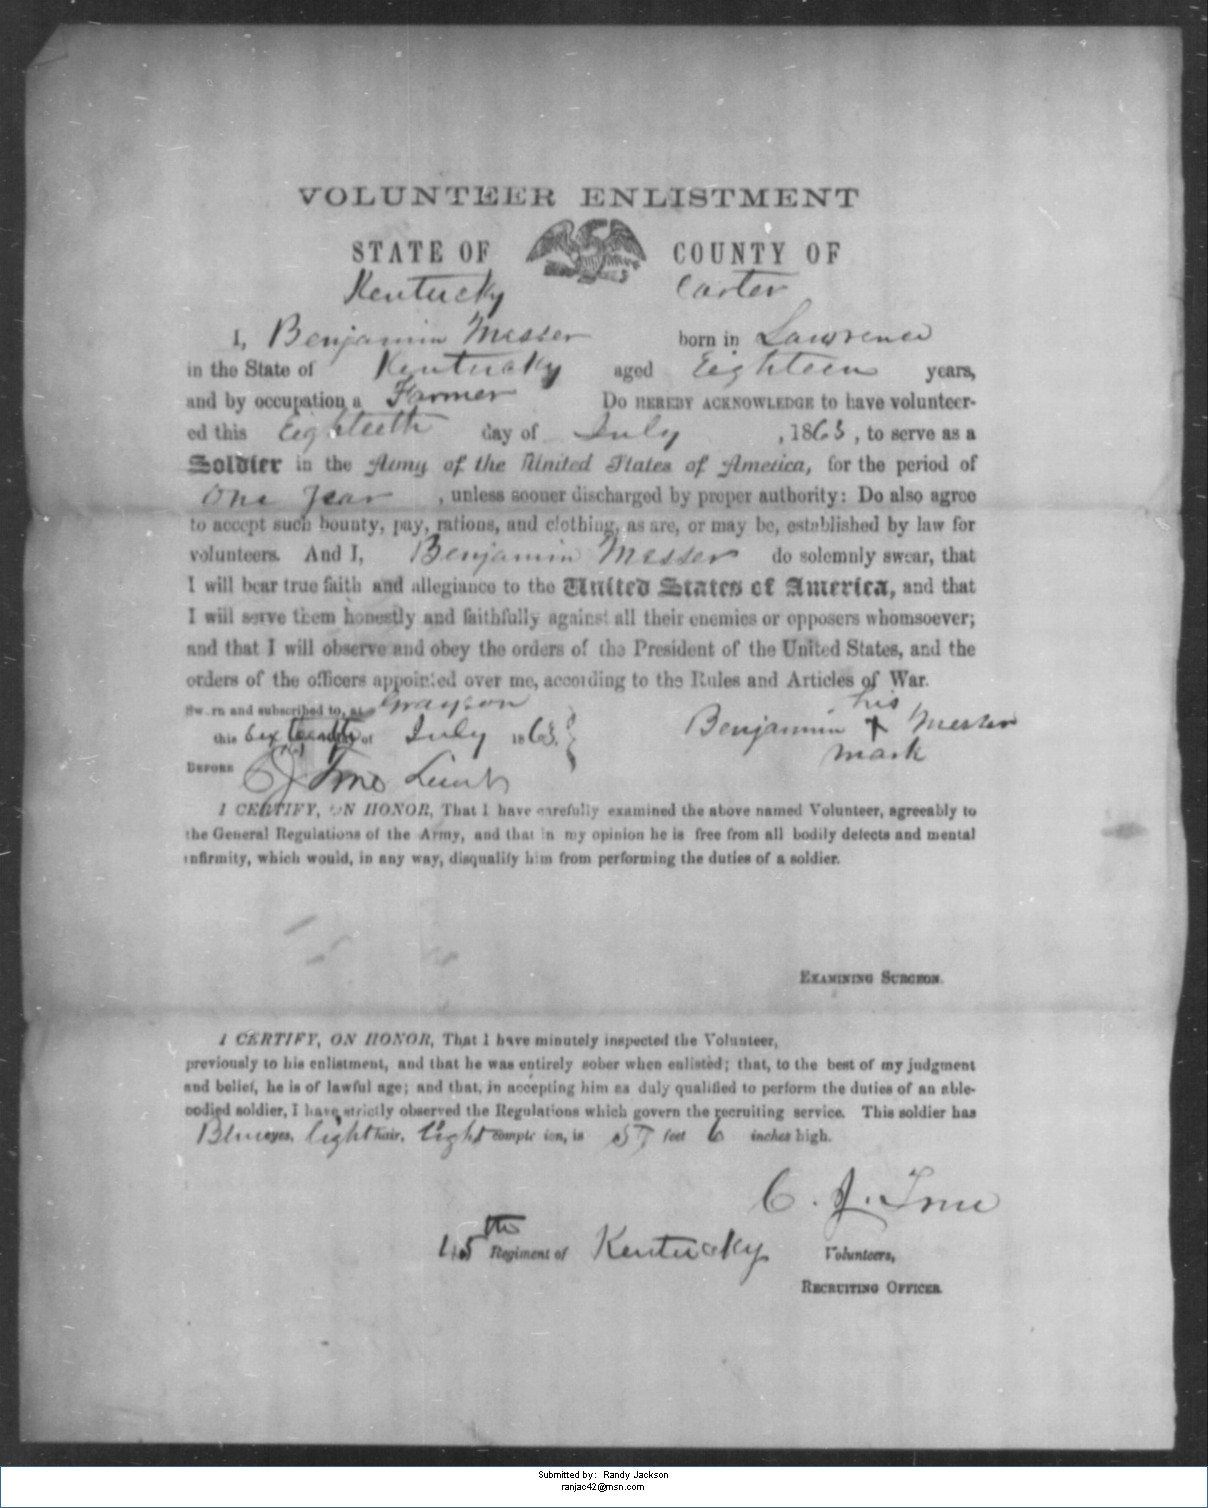 VOLUNTEER ENLISTMENT
STATE OF COUNTY OF
Kentucky Carter
I, Benjamin Messer born in Lawrence
in the State of Kentucky aged Eighteen years,
and by occupation a Farmer Do HEREBY ACKNOWLEDGE to have volunteer-
ed this Eighteeth day of July , 1863, to serve as a
Soldier in the Army of the United States of America, for the period of
One Year , unless sooner discharged by proper authority: Do also agree
to accept such bounty, pay, rations, and clothing, as are, or may be, established by law for
volunteers. And I, Benjamin Messer do solemnly swear, that
I will bear true faith and allegiance to the United States of America, and that
I will serve them honestly and faithfully against all their enemies or opposers whomsoever;
and that I will observe and obey the orders of the President of the United States, and the
orders of the officers appointed over me, according to the Rules and Articles of War.
Sworn and subscribed to, at Grayson his
this day of July 1863. Benjamin + Messer
mark
BEFORE C J True Lieut
I CERTIFY, ON HONOR, That I have carefully examined the above named Volunteer, agreeably to
the General Regulations of the Army, and that in my opinion he is free from all bodily defects and mental
infirmity, which would, in any way, disqualify him from performing the duties of a soldier.
EXAMINING SURGEON.
I CERTIFY, ON HONOR, That I have minutely inspected the Volunteer,
previously to his enlistment, and that he was entirely sober when enlisted; that, to the best of my judgment
and belief, he is of lawful age; and that, in accepting him as duly qualified to perform the duties of an able-
bodied soldier, I have strictly observed the Regulations which govern the recruiting service. This soldier has
Blue eyes, light hair, light complexion, is 5 feet 6 inches high.
C. J. True
45th Regiment of Kentucky Volunteers,
RECRUITING OFFICER.
Submitted by: Randy Jackson
ranjac42@msn.com